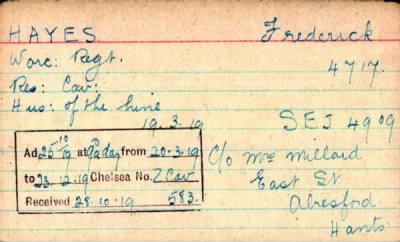 HAYES. Frederick
Worc: Regt. 4717.
Res: Cav:
Hus: of the line
19.3.19 SEJ 4909
Ad 25 10 19 at 9d a day from 20.3.19
to 23.12.19 Chelsea No. 2 Cav
Received 28.10.19 583.
C/o Mrs Millard
East St
Alresford
Hants